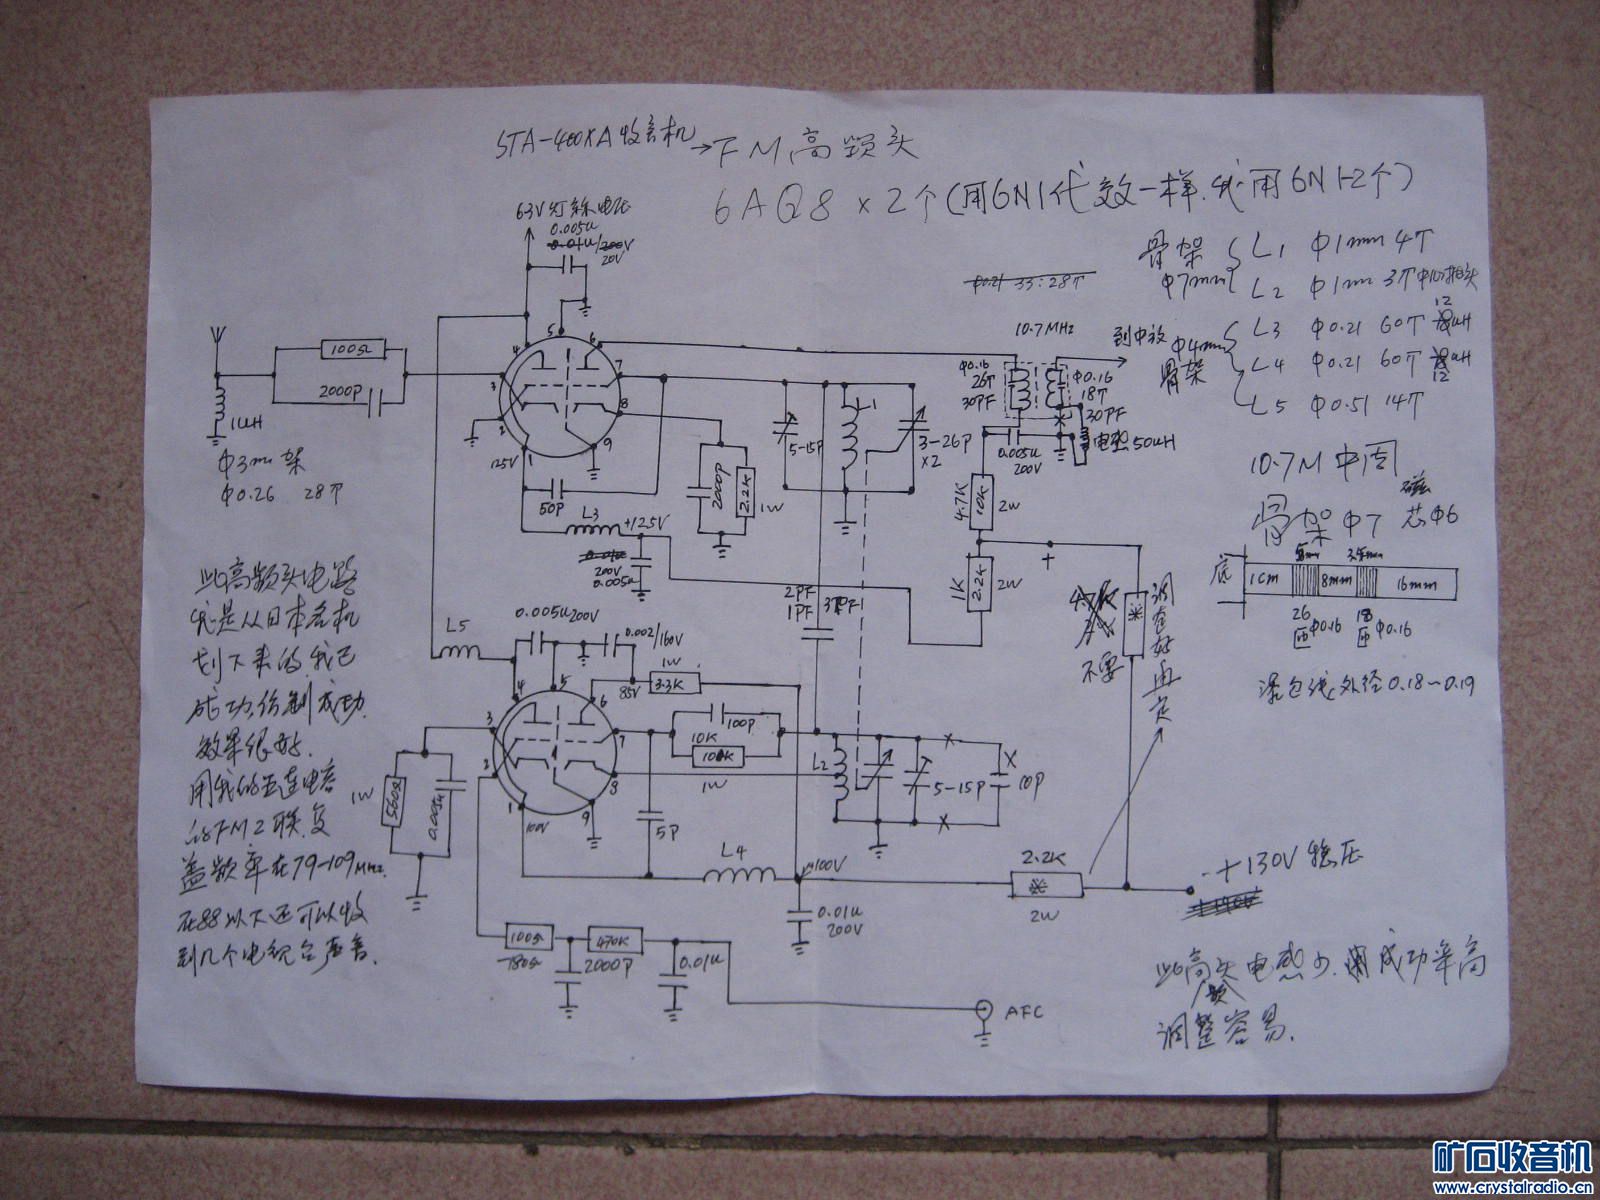 STA-400XA收音机→FM高频头
6AQ8×2个(用6N1代效一样,我用6N1-2个)
6.3V灯丝电压
0.005u
0.01u/200V
20V
骨架
φ7mm
L1 φ1mm 4T
L2 φ1mm 3T中心抽头
φ4mm
骨架
L3 φ0.21 60T 12uH
L4 φ0.21 60T 12uH
L5 φ0.51 14T
φ0.21 33:28T
10.7MHz
到中放
φ0.16
26T
30PF
φ0.16
18T
30PF
电感50uH
0.005u
200V
100Ω
2000P
1uH
φ3mm架
φ0.26 28T
1
2
3
4
5
6
7
8
9
125V
50P
L3
+125V
200V
0.005u
2000P
2.2K
1W
5-15P
L1
3-26P
×2
4.7K
10K
2W
1K
2.2K
2W
+
不要
调整好再定
2PF
1PF
10.7M中周
骨架φ7
磁芯φ6
底
1cm
8mm
16mm
26匝φ0.16
18匝φ0.16
漆包线外径0.18~0.19
此高频头电路
我是从日本名机
划下来的,我已
成功仿制成功.
效果很好.
用我的五连电容
的FM2联,复
盖频率在79-109MHz.
在88以下还可以收
到几个电视台声音.
L5
0.005u200V
0.002/160V
1W
85V
3.3K
1
2
3
4
5
6
7
8
9
100V
560Ω
1W
0.005u
100P
10K
100K
1W
5P
L2
5-15P
10P
L4
100V
0.01u
200V
2.2K
2W
+130V稳压
100Ω
470K
2000P
0.01u
AFC
此高频头电感少.成功率高
调整容易.
矿石收音机
www.crystalradio.cn